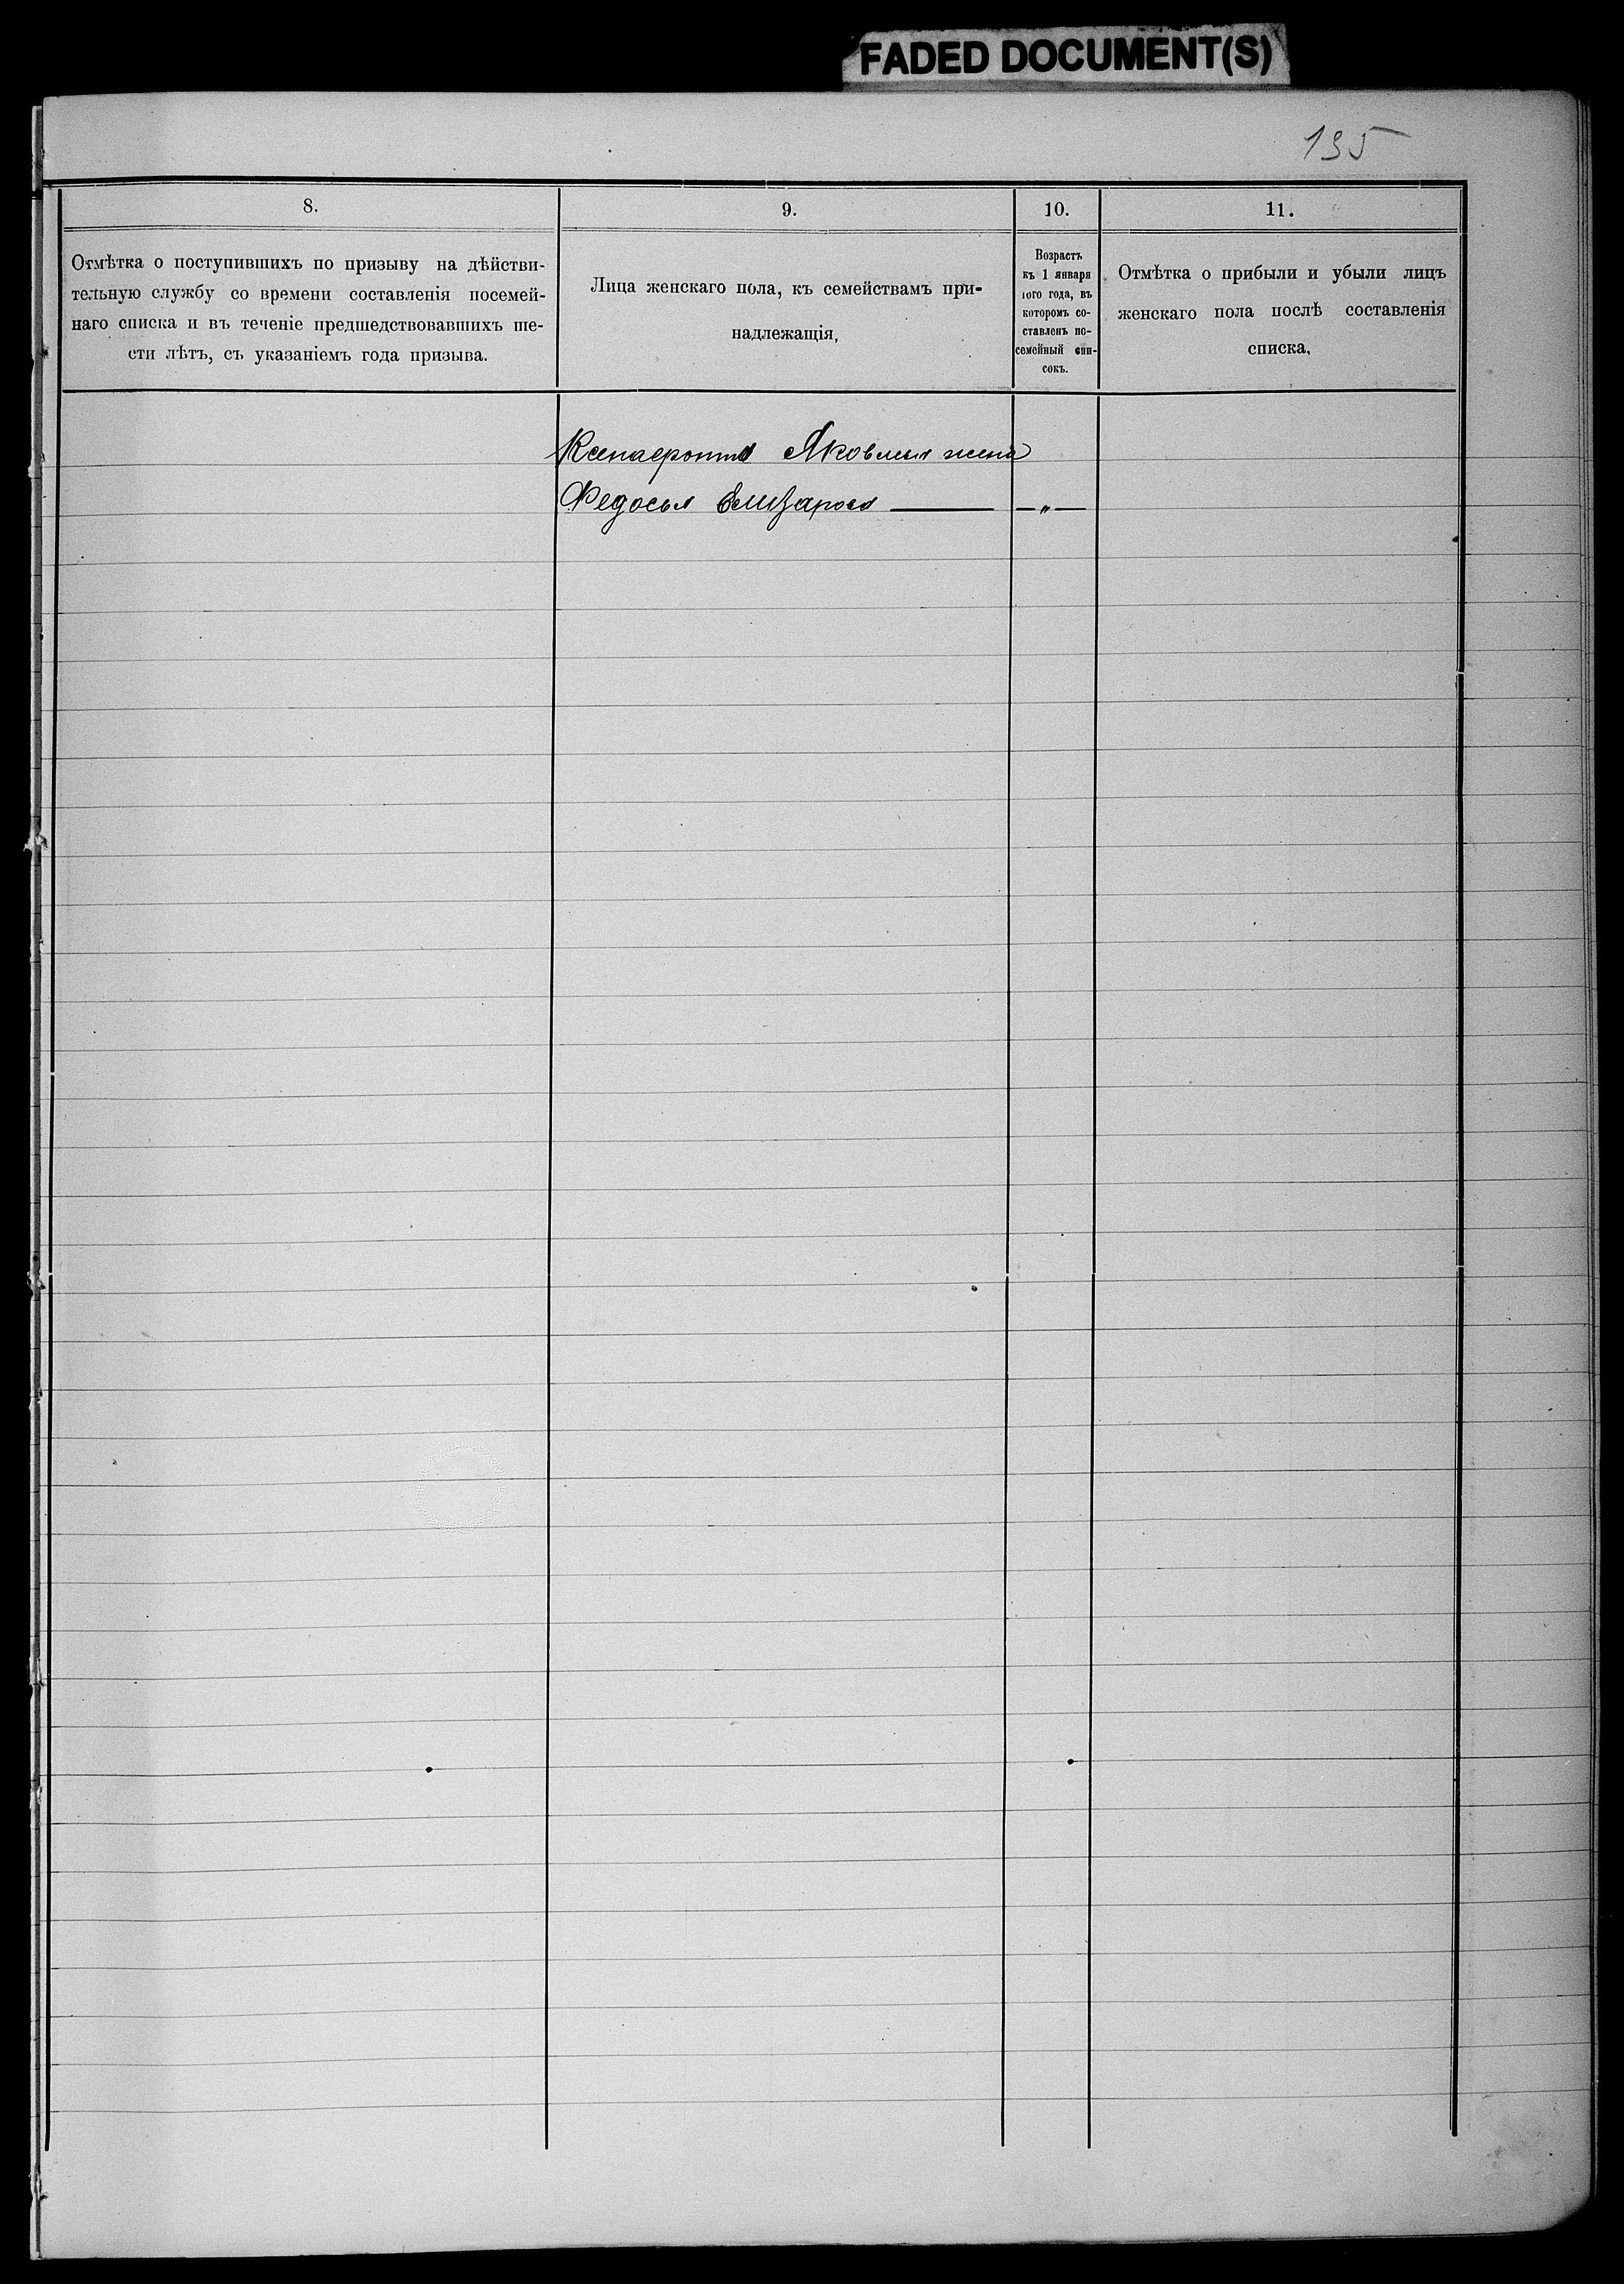 FADED DOCUMENT(S)
195
8.
Отмѣтка о поступившихъ по призыву на дѣйстви-
тельную службу со времени составленія посемей-
наго списка и въ теченіе предшедствовавшихъ ше-
сти лѣтъ, съ указаніемъ года призыва.
9.
Лица женскаго пола, къ семействамъ при-
надлежащія,
10.
Возрастъ
къ 1 января
того года, въ
которомъ со-
ставленъ по-
семейный спи-
сокъ.
11.
Отмѣтка о прибыли и убыли лицъ
женскаго пола послѣ составленія
списка,
Яковлева жена
Федосья Елизарова — — „ —